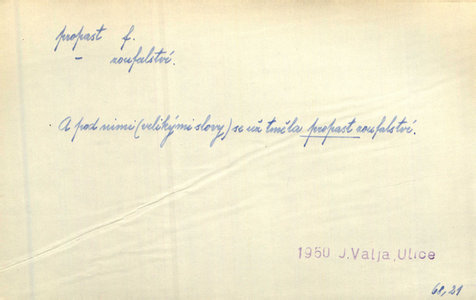 propast f.
– zoufalství.
A pod nimi (velikými slovy) se už tměla propast zoufalství.
1950 J. Valja, Ulice
68, 21